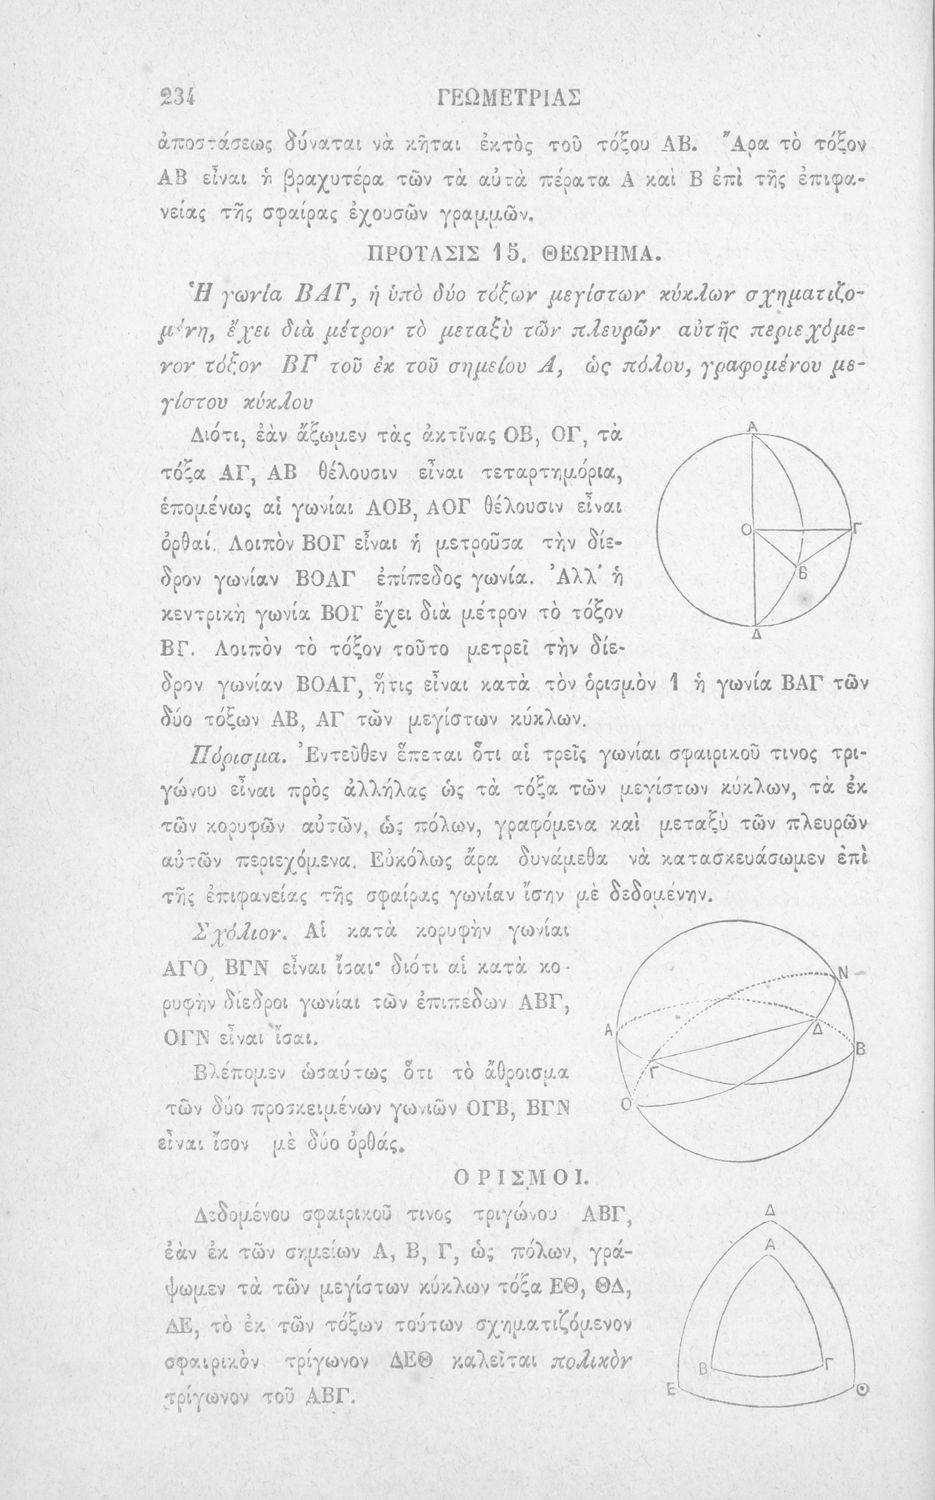 234 ΓΕΩΜΕΤΡΙΑΣ
ἀποστάσεως δύναται νὰ κῆται ἐκτὸς τοῦ τόξου ΑΒ. Ἄρα τὸ τόξον
ΑΒ εἶναι ἡ βραχυτέρα τῶν τὰ αὐτὰ πέρατα Α καὶ Β ἐπὶ τῆς ἐπιφα-
νείας τῆς σφαίρας ἐχουσῶν γραμμῶν.
ΠΡΟΤΑΣΙΣ 15. ΘΕΩΡΗΜΑ.
Ἡ γωνία ΒΑΓ, ἡ ὑπὸ δύο τόξων μεγίστων κύκλων σχηματιζο-
μένη, ἔχει διὰ μέτρον τὸ μεταξὺ τῶν πλευρῶν αὐτῆς περιεχόμε-
νον τόξον ΒΓ τοῦ ἐκ τοῦ σημείου Α, ὡς πόλου, γραφομένου με-
γίστου κύκλου
Διότι, ἐὰν ἄξωμεν τὰς ἀκτῖνας ΟΒ, ΟΓ, τὰ
τόξα ΑΓ, ΑΒ θέλουσιν εἶναι τεταρτημόρια,
ἑπομένως αἱ γωνίαι ΑΟΒ, ΑΟΓ θέλουσιν εἶναι
ὀρθαί. Λοιπὸν ΒΟΓ εἶναι ἡ μετροῦσα τὴν δίε-
δρον γωνίαν ΒΟΑΓ ἐπίπεδος γωνία. Ἀλλ' ἡ
κεντρικὴ γωνία ΒΟΓ ἔχει διὰ μέτρον τὸ τόξον
ΒΓ. Λοιπὸν τὸ τόξον τοῦτο μετρεῖ τὴν δίε-
δρον γωνίαν ΒΟΑΓ, ἥτις εἶναι κατὰ τὸν ὁρισμὸν 1 ἡ γωνία ΒΑΓ τῶν
δύο τόξων ΑΒ, ΑΓ τῶν μεγίστων κύκλων.
Α
Ο
Γ
Β
Δ
Πόρισμα. Ἐντεῦθεν ἕπεται ὅτι αἱ τρεῖς γωνίαι σφαιρικοῦ τινος τρι-
γώνου εἶναι πρὸς ἀλλήλας ὡς τὰ τόξα τῶν μεγίστων κύκλων, τὰ ἐκ
τῶν κορυφῶν αὐτῶν, ὡς πόλων, γραφόμενα καὶ μεταξὺ τῶν πλευρῶν
αὐτῶν περιεχόμενα. Εὐκόλως ἄρα δυνάμεθα νὰ κατασκευάσωμεν ἐπὶ
τῆς ἐπιφανείας τῆς σφαίρας γωνίαν ἴσην μὲ δεδομένην.
Σχόλιον. Αἱ κατὰ κορυφὴν γωνίαι
ΑΓΟ, ΒΓΝ εἶναι ἴσαι· διότι αἱ κατὰ κο-
ρυφὴν δίεδροι γωνίαι τῶν ἐπιπέδων ΑΒΓ,
ΟΓΝ εἶναι ἴσαι.
Βλέπομεν ὡσαύτως ὅτι τὸ ἄθροισμα
τῶν δύο προσκειμένων γωνιῶν ΟΓΒ, ΒΓΝ
εἶναι ἴσον μὲ δύο ὀρθάς.
Ν
Α
Δ
Β
Γ
Ο
ΟΡΙΣΜΟΙ.
Δεδομένου σφαιρικοῦ τινος τριγώνου ΑΒΓ,
ἐὰν ἐκ τῶν σημείων Α, Β, Γ, ὡς πόλων, γρά-
ψωμεν τὰ τῶν μεγίστων κύκλων τόξα ΕΘ, ΘΔ,
ΔΕ, τὸ ἐκ τῶν τόξων τούτων σχηματιζόμενον
σφαιρικὸν τρίγωνον ΔΕΘ καλεῖται πολικὸν
τρίγωνον τοῦ ΑΒΓ.
Δ
Α
Β
Γ
Ε
Θ